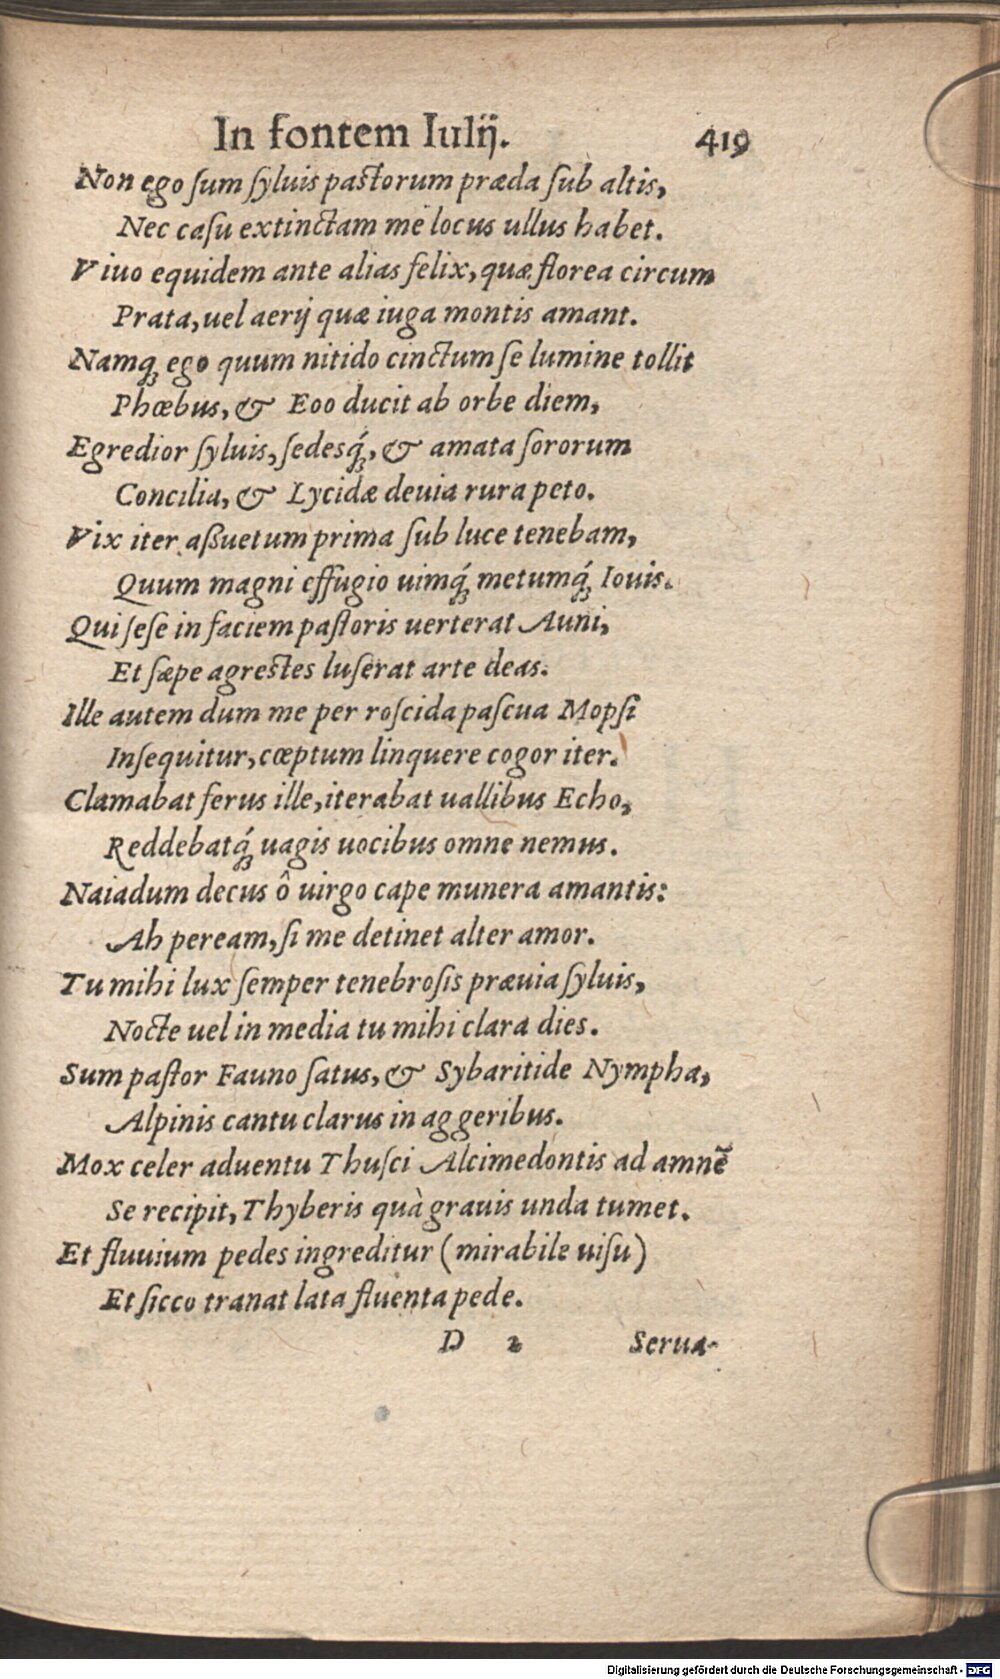 In fontem Iulij. 419
Non ego ſum ſyluis paſtorum præda ſub altis,
Nec caſu extinctam me locus ullus habet.
Viuo equidem ante alias felix, quæ florea circum
Prata, uel aerij quæ iuga montis amant.
Namq́ꝫ ego quum nitido cinctum ſe lumine tollit
Phœbus, & Eoo ducit ab orbe diem,
Egredior ſyluis, ſedesq́ꝫ, & amata ſororum
Concilia, & Lycidæ deuia rura peto.
Vix iter aßuetum prima ſub luce tenebam,
Quum magni effugio uimq́ꝫ metumq́ꝫ Iouis.
Qui ſeſe in faciem paſtoris uerterat Auni,
Et ſæpe agreſtes luſerat arte deas.
Ille autem dum me per roſcida paſcua Mopſi
Inſequitur, cœptum linquere cogor iter.
Clamabat ferus ille, iterabat uallibus Echo,
Reddebatq́ꝫ uagis uocibus omne nemus.
Naiadum decus ô uirgo cape munera amantis:
Ah peream, ſi me detinet alter amor.
Tu mihi lux ſemper tenebroſis præuia ſyluis,
Nocte uel in media tu mihi clara dies.
Sum paſtor Fauno ſatus, & Sybaritide Nympha,
Alpinis cantu clarus in aggeribus.
Mox celer aduentu Thuſci Alcimedontis ad amnē
Se recipit, Thyberis quà grauis unda tumet.
Et fluuium pedes ingreditur (mirabile uiſu)
Et ſicco tranat lata fluenta pede.
D 2 Serua-
Digitalisierung gefördert durch die Deutsche Forschungsgemeinschaft - DFG